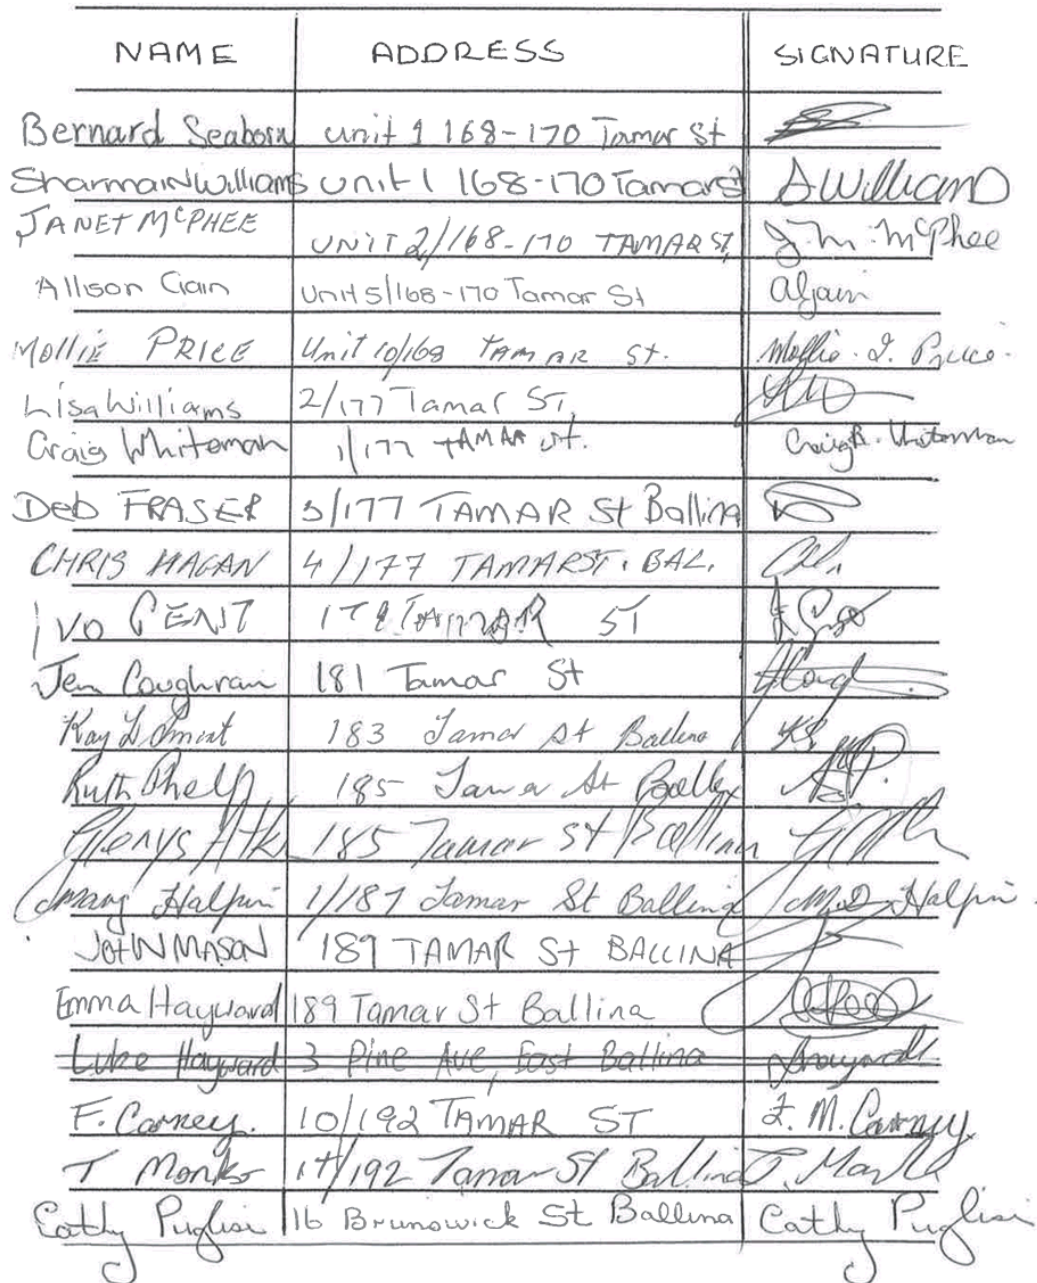 NAME ADDRESS SIGNATURE
Bernard Seaborn unit 1 168-170 Tamar St
Sharmain Williams unit 1 168-170 Tamar St SWilliams
JANET McPHEE UNIT 2/168-170 TAMAR ST, J.M. McPhee
Allison Gain Unit 5/168-170 Tamar St AGain
MOLLIE PRICE Unit 10/168 TAMAR St. Mollie. I. Price.
Lisa Williams 2/177 Tamar ST,
Craig Whiteman 1/177 TAMAR St. Craig R. Whiteman
Deb FRASER 3/177 TAMAR St Ballina
CHRIS HAGAN 4/177 TAMAR ST. BAL.
IVO CENT TAMAR ST
Jen Coughran 181 Tamar St
Kay 183 Tamar St Ballina
Ruth Phelp 185 Tamar St Ballina
Glenys 185 Tamar St Ballina
Halpin 1/187 Tamar St Ballina Halpin
JOHN MASON 189 TAMAR St BALLINA
Emma Hayward 189 Tamar St Ballina
Luke Hayward 3 Pine Ave, East Ballina
F. Carney. 10/192 TAMAR ST F. M. Carney
T Monks 14/192 Tamar St Ballina T. Monks
Cathy Puglisi 16 Brunswick St Ballina Cathy Puglisi